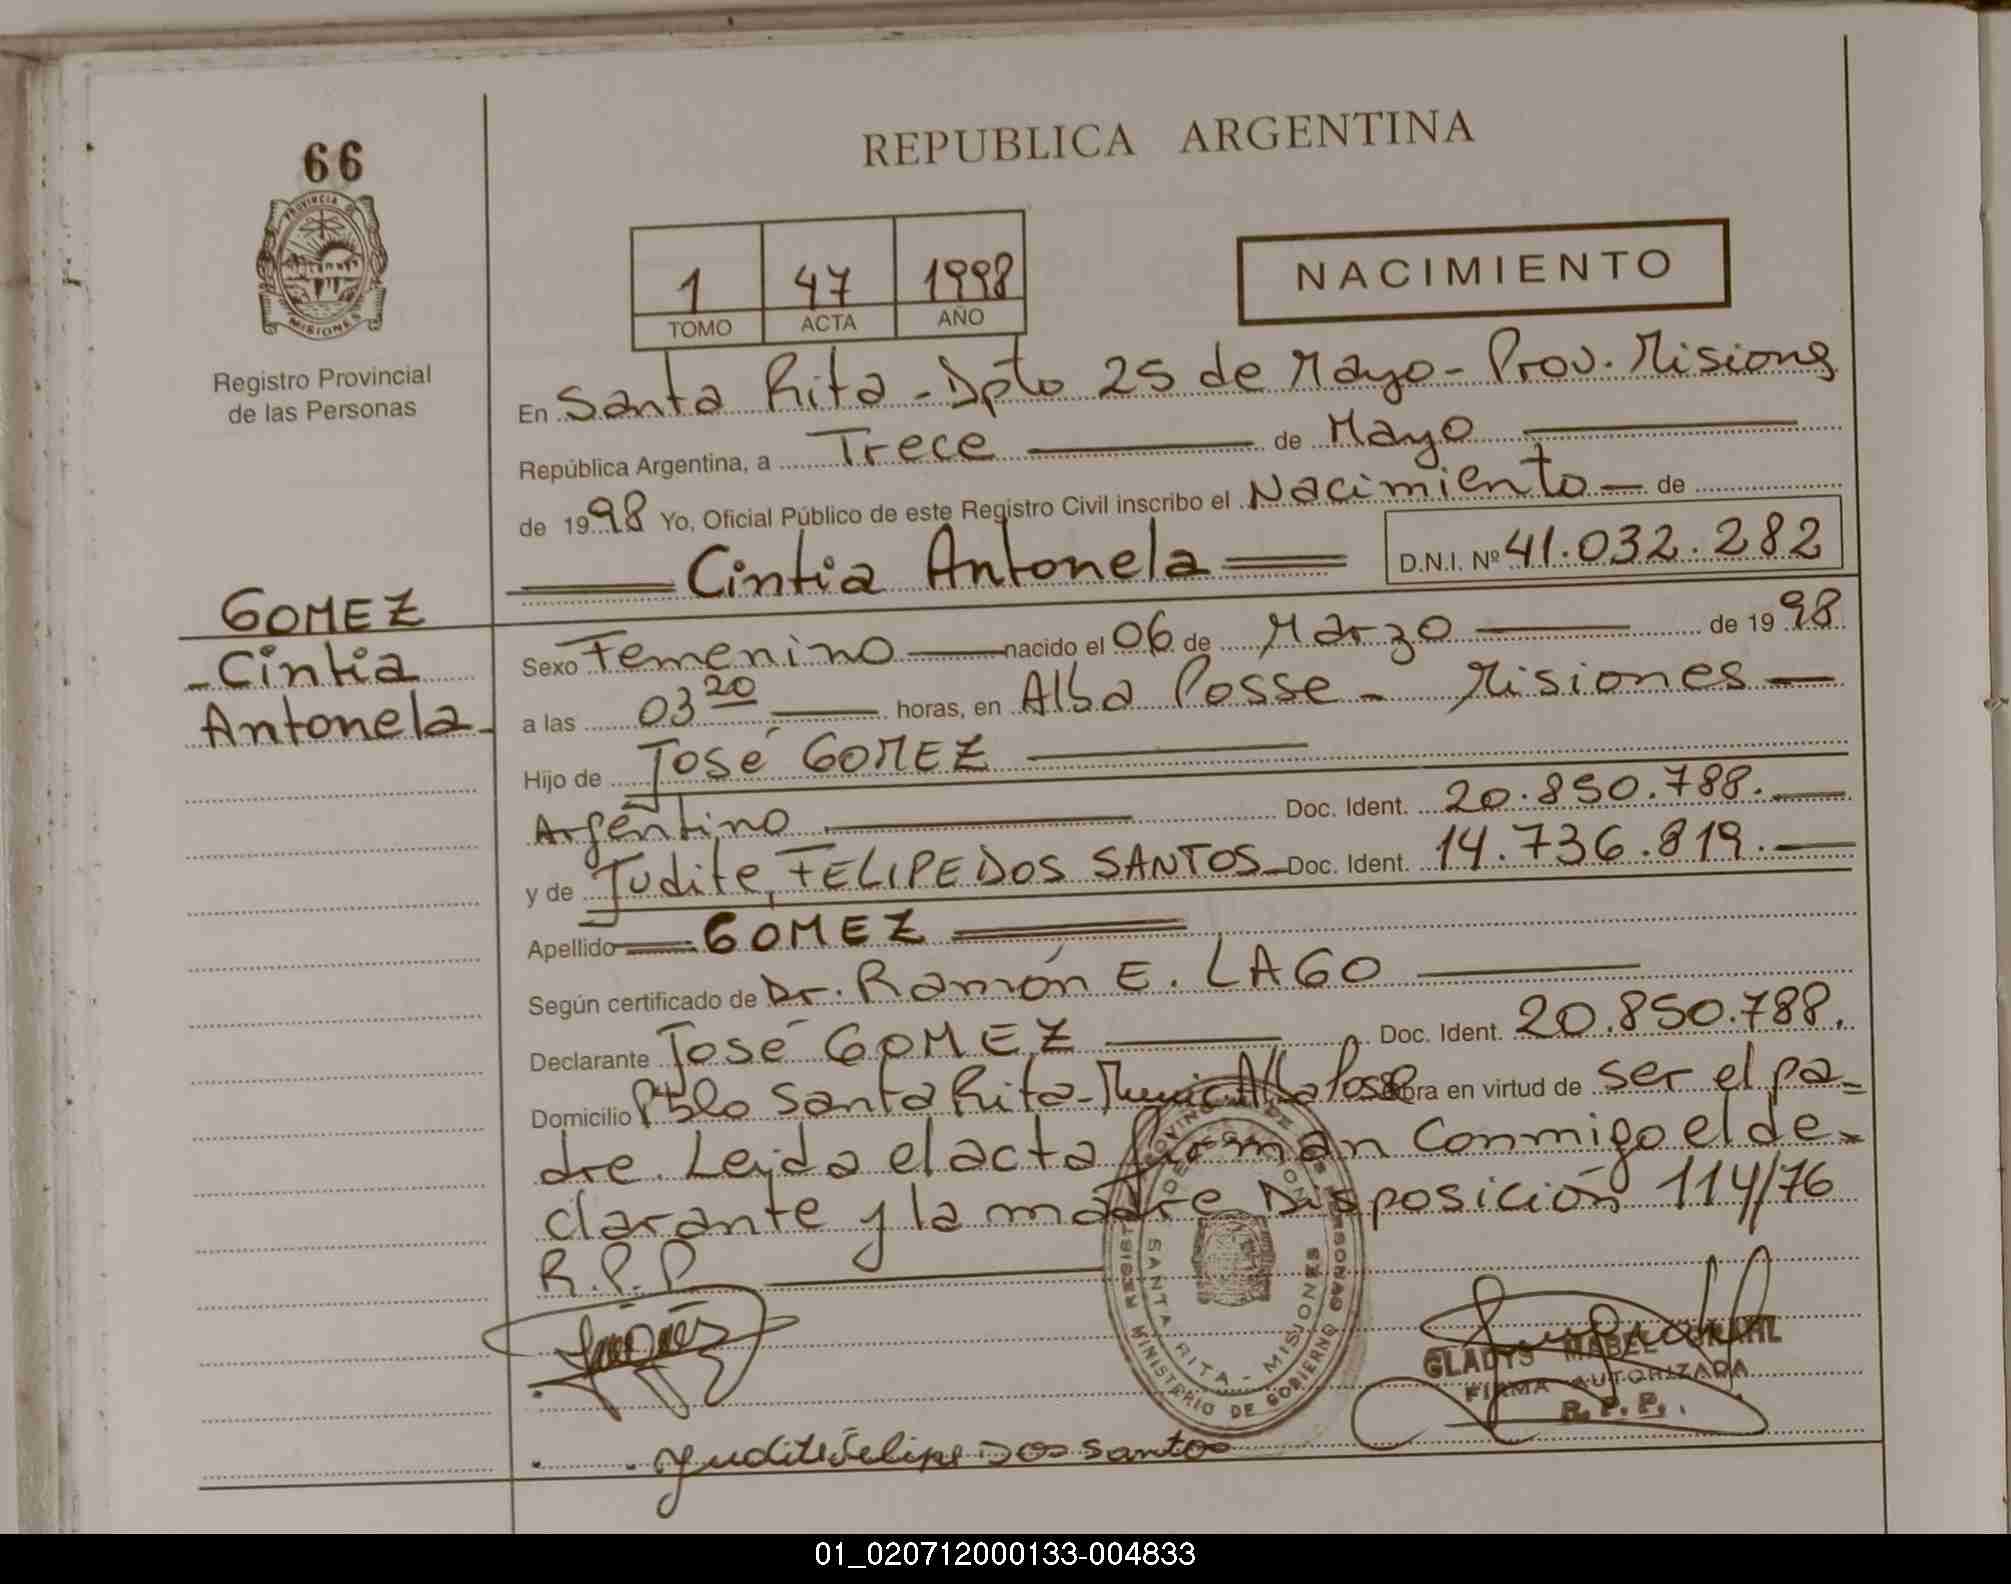 66
PROVINCIA DE
MISIONES
Registro Provincial
de las Personas
REPUBLICA ARGENTINA
1 47 1998
TOMO ACTA AÑO
NACIMIENTO
En Santa Rita - Dpto 25 de Mayo - Prov. Misiones
República Argentina, a Trece de Mayo
de 1998 Yo, Oficial Público de este Registro Civil inscribo el Nacimiento de
Cintia Antonela D.N.I. Nº 41.032.282
GOMEZ
- Cintia
Antonela -
Sexo Femenino nacido el 06 de Marzo de 1998
a las 03 20 horas, en Alba Posse - Misiones
Hijo de José GOMEZ
Argentino Doc. Ident. 20.850.788.
y de Judite, FELIPE DOS SANTOS Doc. Ident. 14.736.819.
Apellido GOMEZ
Según certificado de Dr. Ramón E. LAGO
Declarante José GOMEZ Doc. Ident. 20.850.788.
Domicilio Pblo Santa Rita - Munic. Alba Posse obra en virtud de ser el pa-
dre. Leida el acta firman conmigo el de-
clarante y la madre Disposición 114/76
R.P.P
SANTA RITA - MISIONES
MINISTERIO DE GOBIERNO
GLADYS MABEL
FIRMA AUTORIZADA
R.P.P.
Judite Felipe Dos Santos
01_020712000133-004833